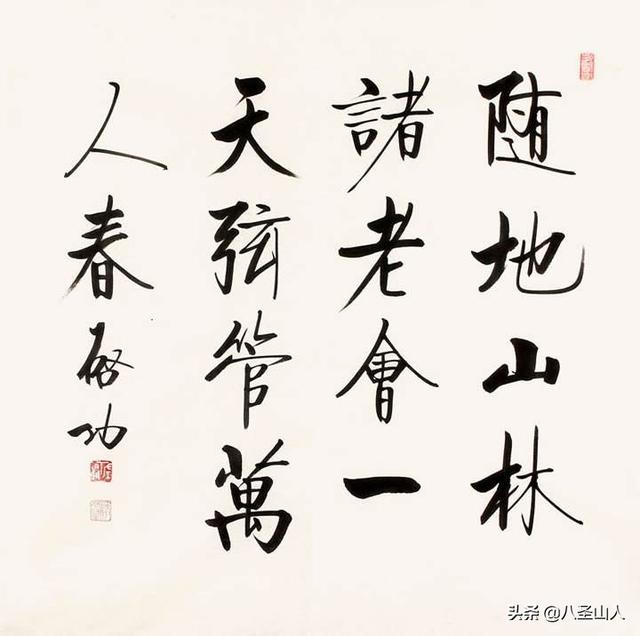 随地山林
諸老會一
天弦管萬
人春
启功
头条 @八圣山人